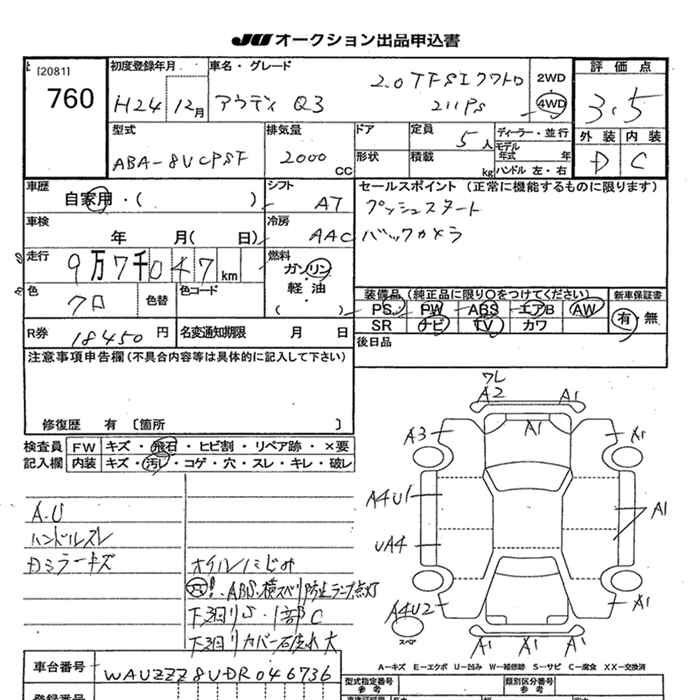 JU オークション出品申込書
[2081]
760
初度登録年月
H24 12月
車名・グレード
2.0TFSIクワトロ
アウディ Q3 211PS
2WD
4WD
評価点
3.5
外装 内装
D C
型式
ABA-8UCPSF
排気量
2000 CC
ドア
形状
定員 5人
積載 kg
ディーラー・並行
モデル年式 年
ハンドル 左・右
車歴
自家用・( )
シフト
AT
セールスポイント (正常に機能するものに限ります)
プッシュスタート
バックカメラ
車検
年 月( 日)
冷房
AAC
走行
9万7千047km
燃料
ガソリン
・
軽・油
( )
色
クロ
色替
色コード
装備品 (純正品に限り○をつけてください)
PS PW ABS エアB AW
SR ナビ TV カワ
新車保証書
有・無
R券 18450円
名変通知期限 月 日
後日品
注意事項申告欄(不具合内容等は具体的に記入して下さい)
修復歴 有〔箇所 〕
検査員記入欄
FW キズ・飛石・ヒビ割・リペア跡・×要
内装 キズ・汚レ・コゲ・穴・スレ・キレ・破レ
ワレ
A2 A1
A3 A1 A1
A4U1 A1
UA4
A4U2 A1 A1
スペア
A.U
ハンドルスレ
Dミラーキズ
オイルにじみ
ABS・横スベリ防止ランプ点灯
下廻りS・1部C
下廻りカバー石はね大
A−キズ E−エクボ U−凹み W−補修跡 S−サビ C−腐食 XX−交換済
車台番号 WAUZZZ8UDR046736
型式指定番号
参考
類別区分番号
参考
登録番号